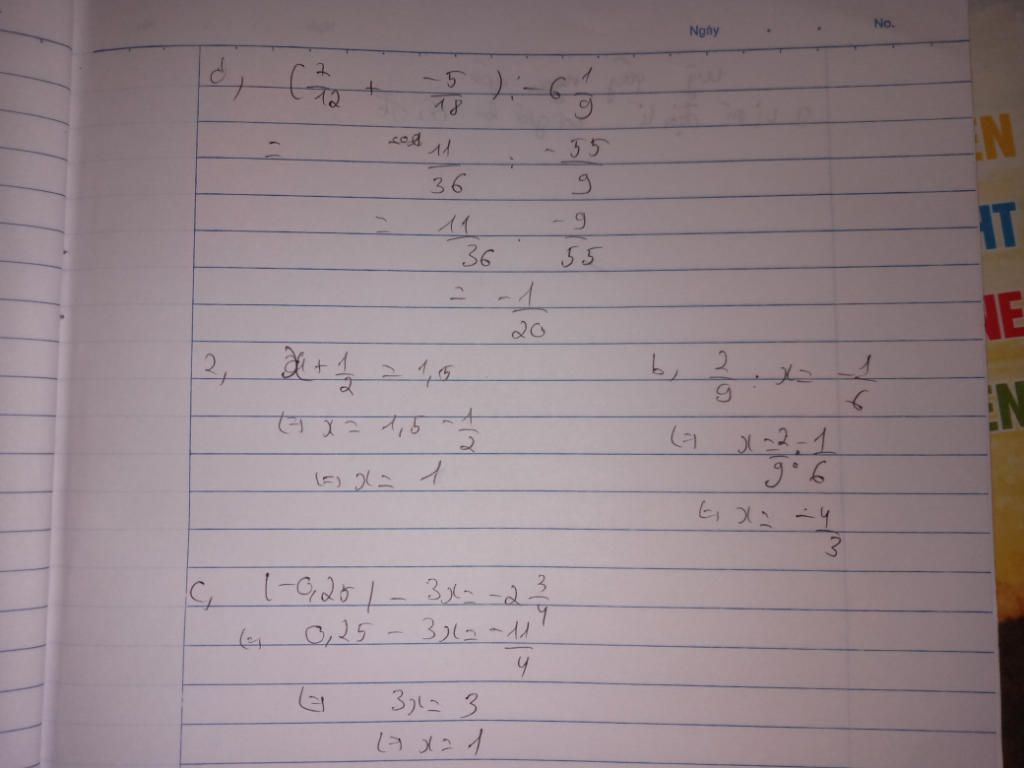 Ngày . . No.
d, (7/12 + -5/18) : -6 1/9
= 11/36 : -55/9
= 11/36 . -9/55
= -1/20
2, x + 1/2 = 1,5
(=) x = 1,5 - 1/2
(=) x = 1
b, 2/9 : x = -1/6
(=) x = 2/9 : -1/6
(=) x = -4/3
c, |-0,25| - 3x = -2 3/4
(=) 0,25 - 3x = -11/4
(=) 3x = 3
(=) x = 1
EN
HT
NE
EN